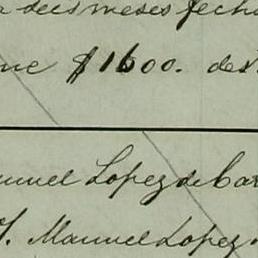 a dies meses fecha
$1600. des
anuel Lopez de Car
Manuel Lopez